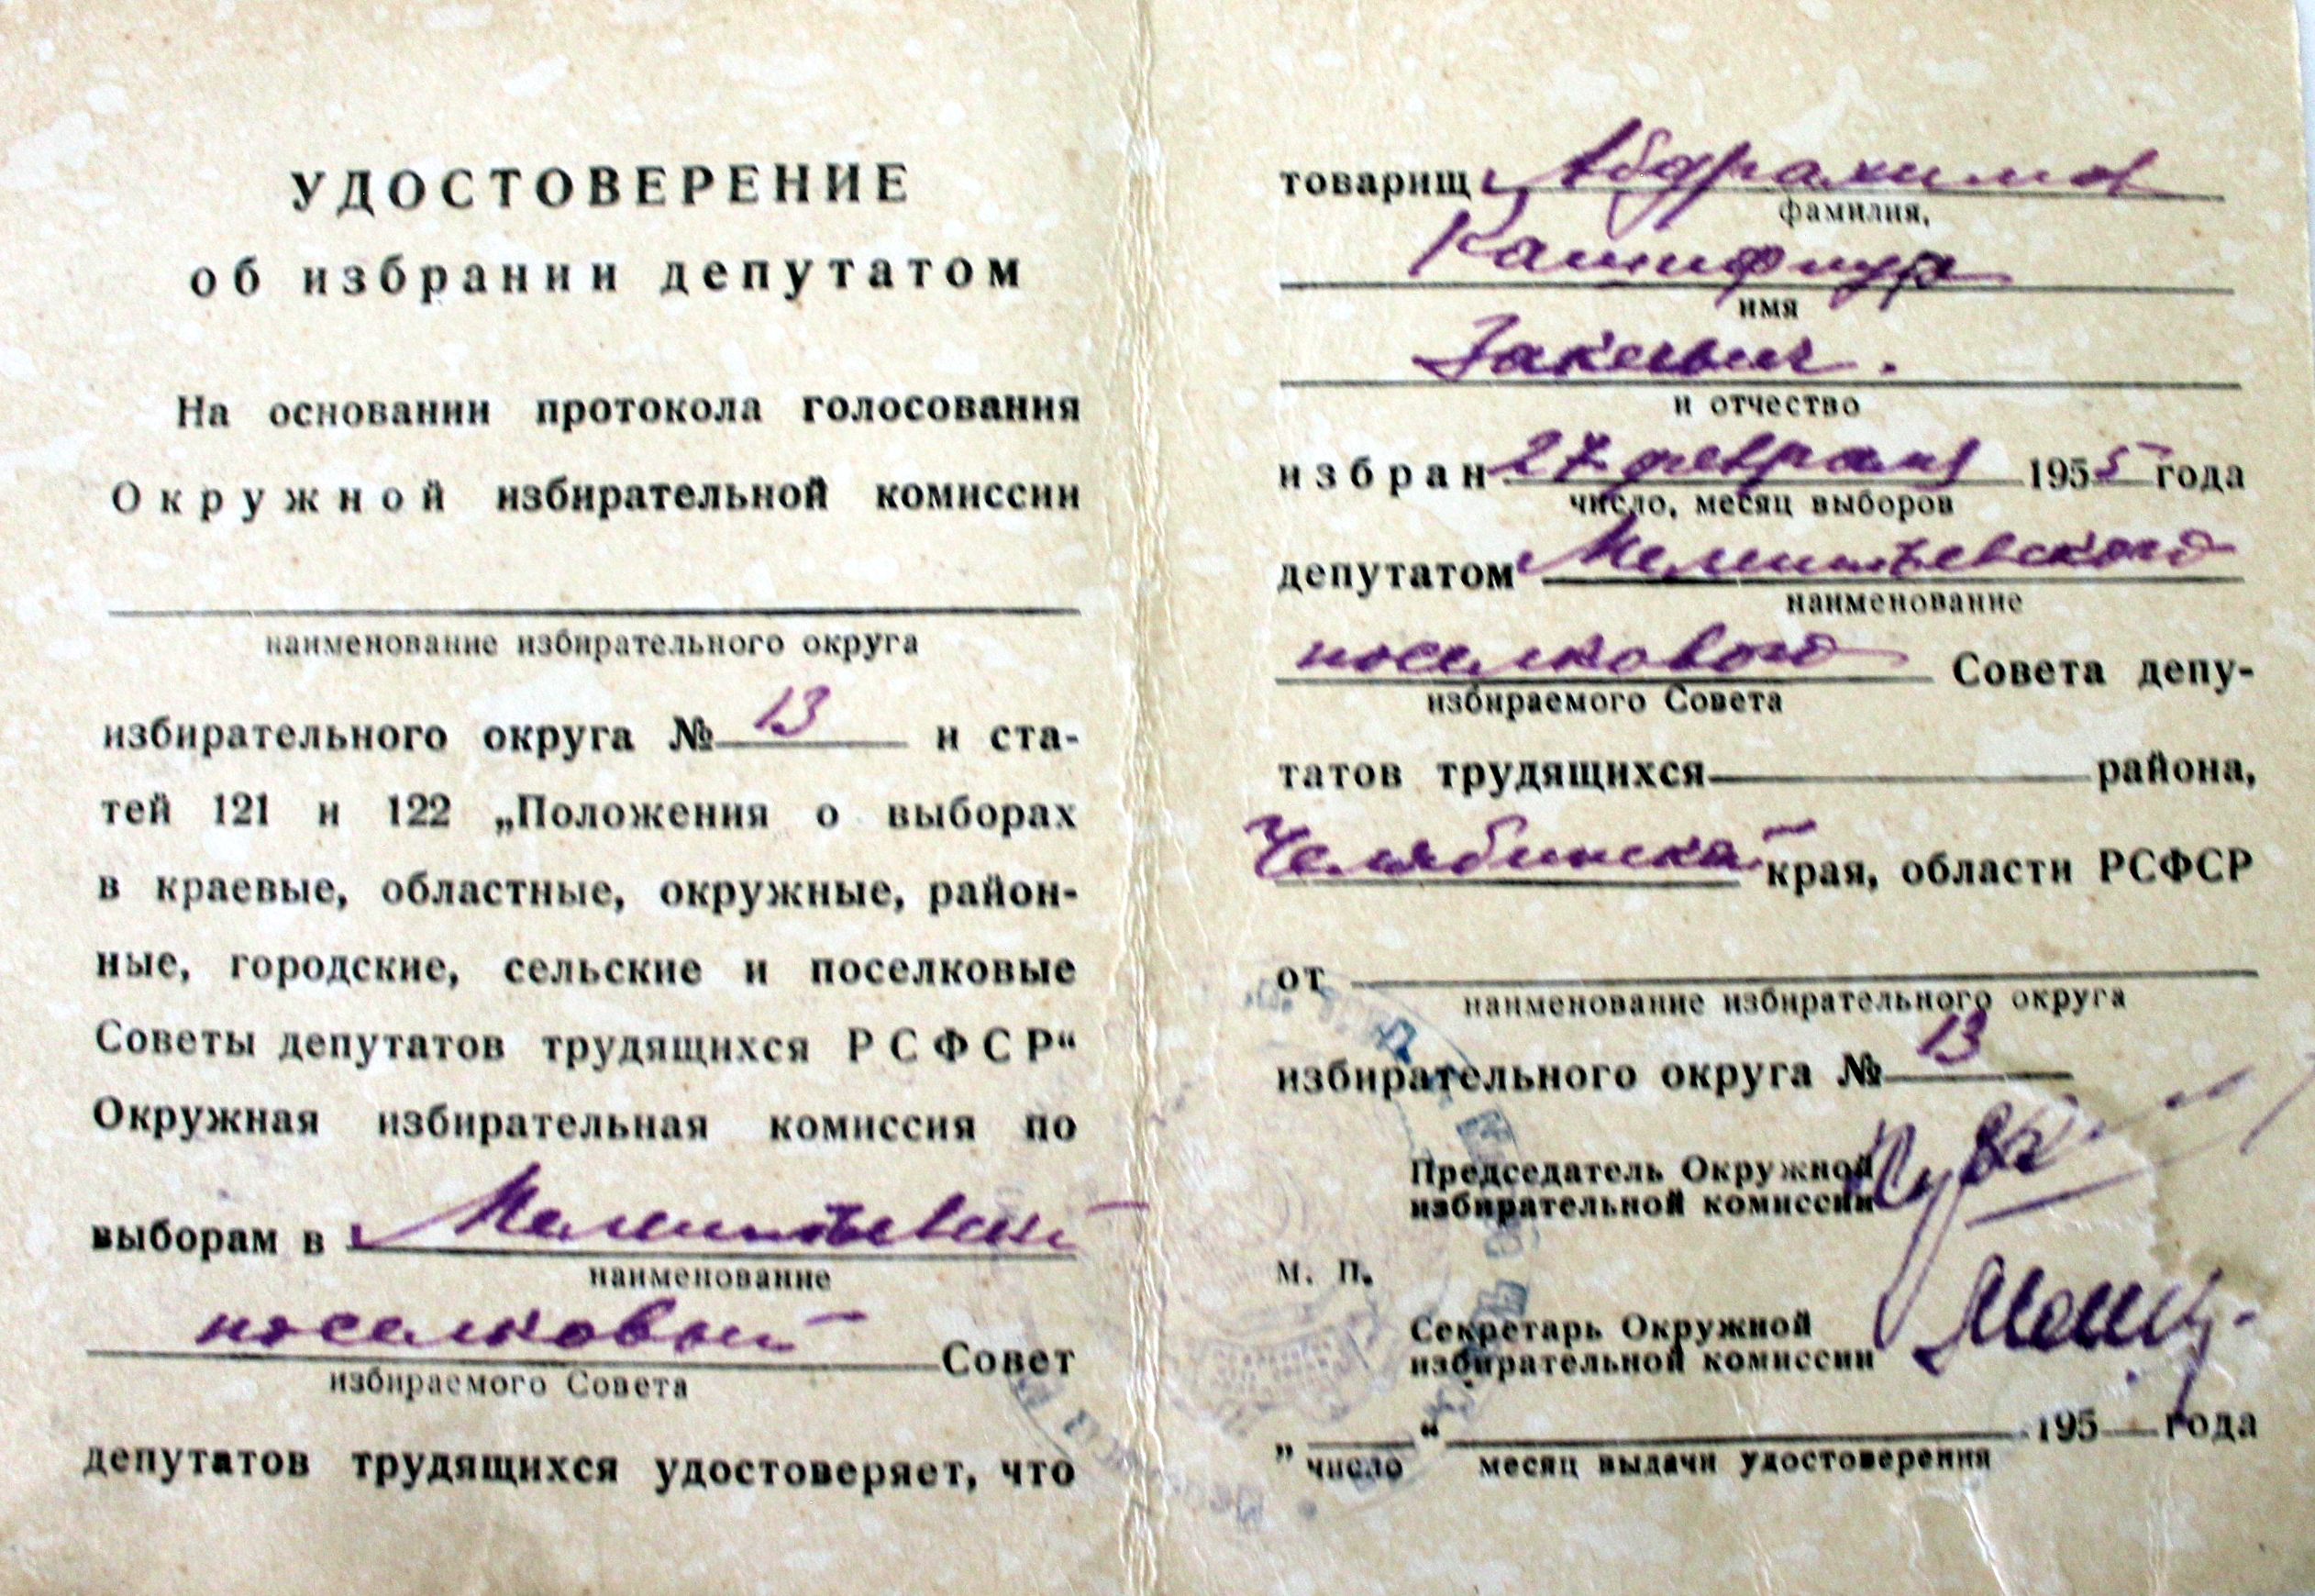 УДОСТОВЕРЕНИЕ
об избрании депутатом
На основании протокола голосования
Окружной избирательной комиссии
наименование избирательного округа
избирательного округа № 13 и ста-
тей 121 и 122 „Положения о выборах
в краевые, областные, окружные, район-
ные, городские, сельские и поселковые
Советы депутатов трудящихся РСФСР“
Окружная избирательная комиссия по
выборам в
наименование
поселковый Совет
избираемого Совета
депутатов трудящихся удостоверяет, что
товарищ Абдрахимов
фамилия,
имя
Закевич.
и отчество
избран 27 февраля 1955 года
число, месяц выборов
депутатом
наименование
поселкового Совета депу-
избираемого Совета
татов трудящихся района,
Челябинской края, области РСФСР
от
наименование избирательного округа
избирательного округа № 13
Председатель Окружной
избирательной комиссии
м. п.
Секретарь Окружной
избирательной комиссии
„ “ 195 года
число месяц выдачи удостоверения